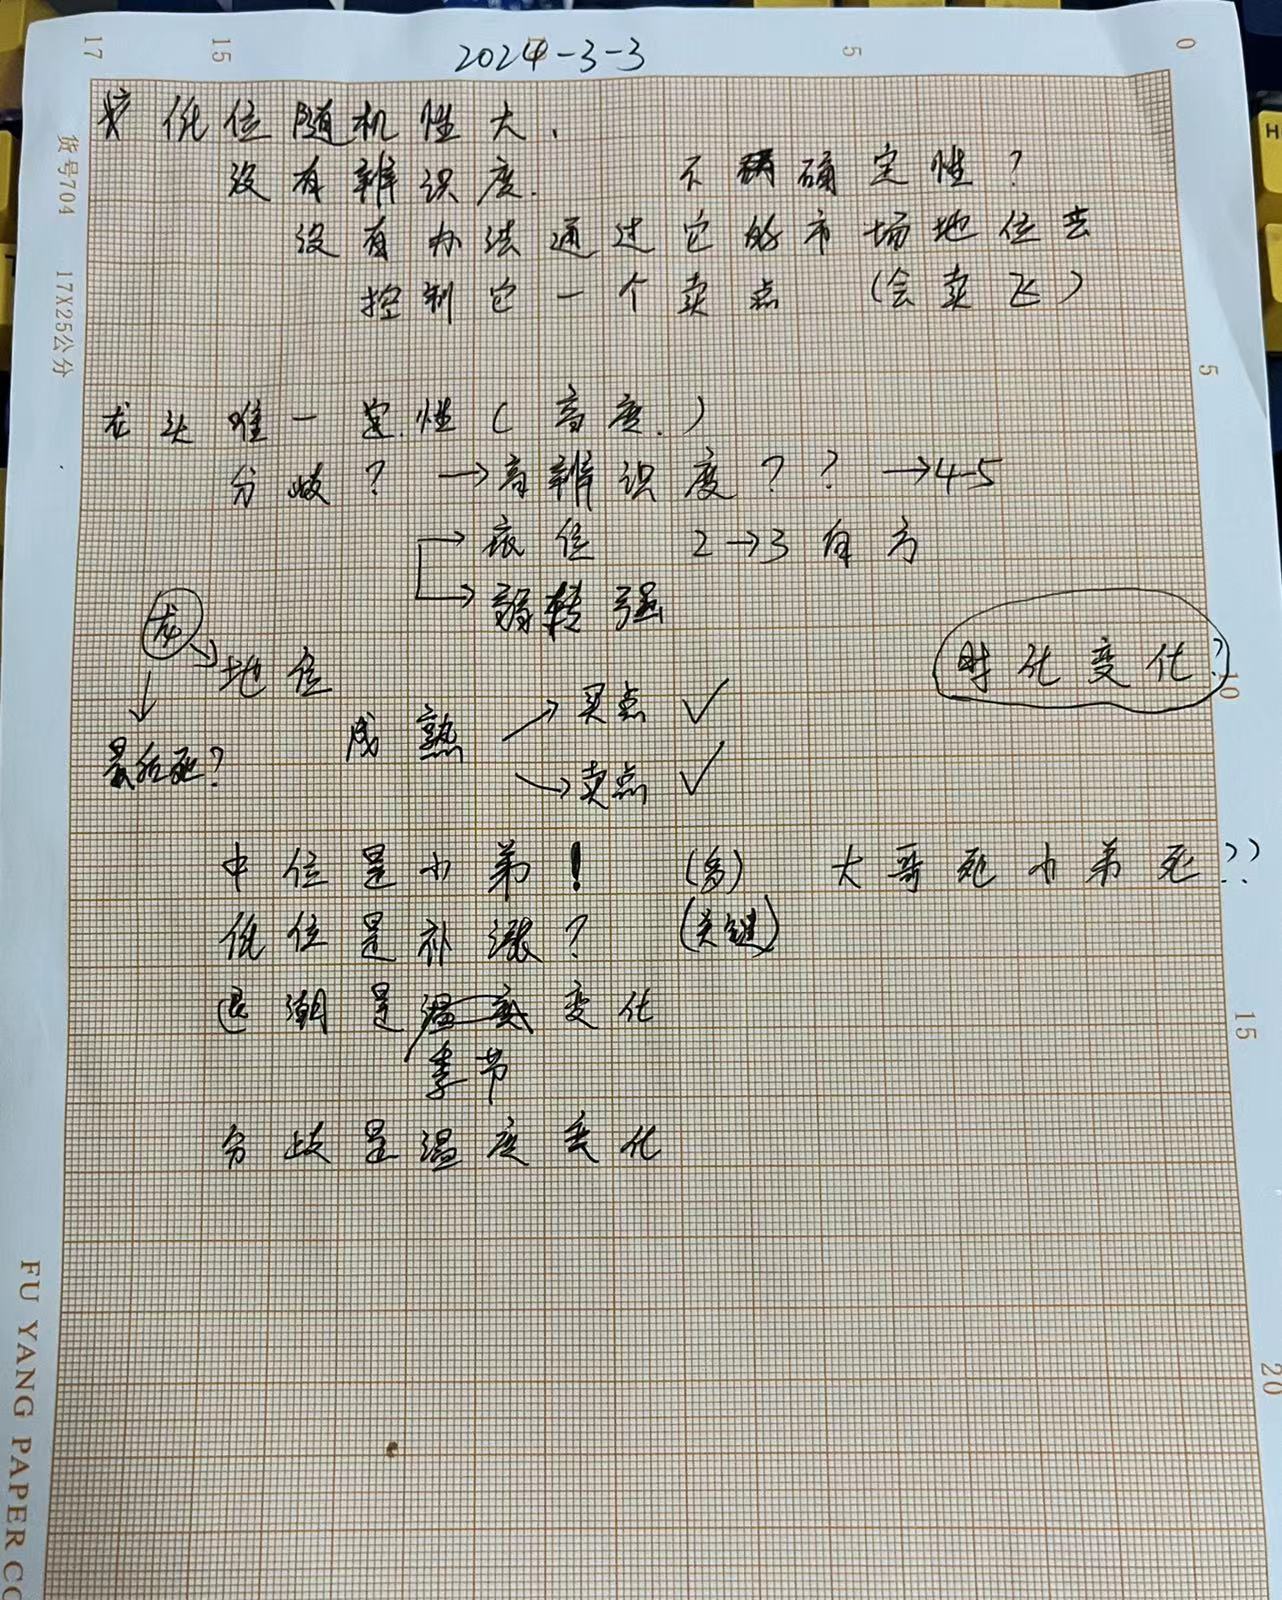 2024-3-3
17 15 5 0
低位随机性大.
没有辨识度. 不确定性?
没有办法通过它的市场地位去
控制它一个卖点 (会卖飞)
5
龙头唯一定性(高度.)
分歧? →高辨识度?? →4-5
→底位 2→3 有方
→弱转强
龙 →地位
时化变化?
10
成熟 →买点 ✓
最后死?
→卖点 ✓
中位是小弟! (多) 大哥死小弟死??
低位是补涨? (关键)
退潮是 变化
15
季节
分歧是温度变化
20
货号704 17X25公分
FU YANG PAPER CO